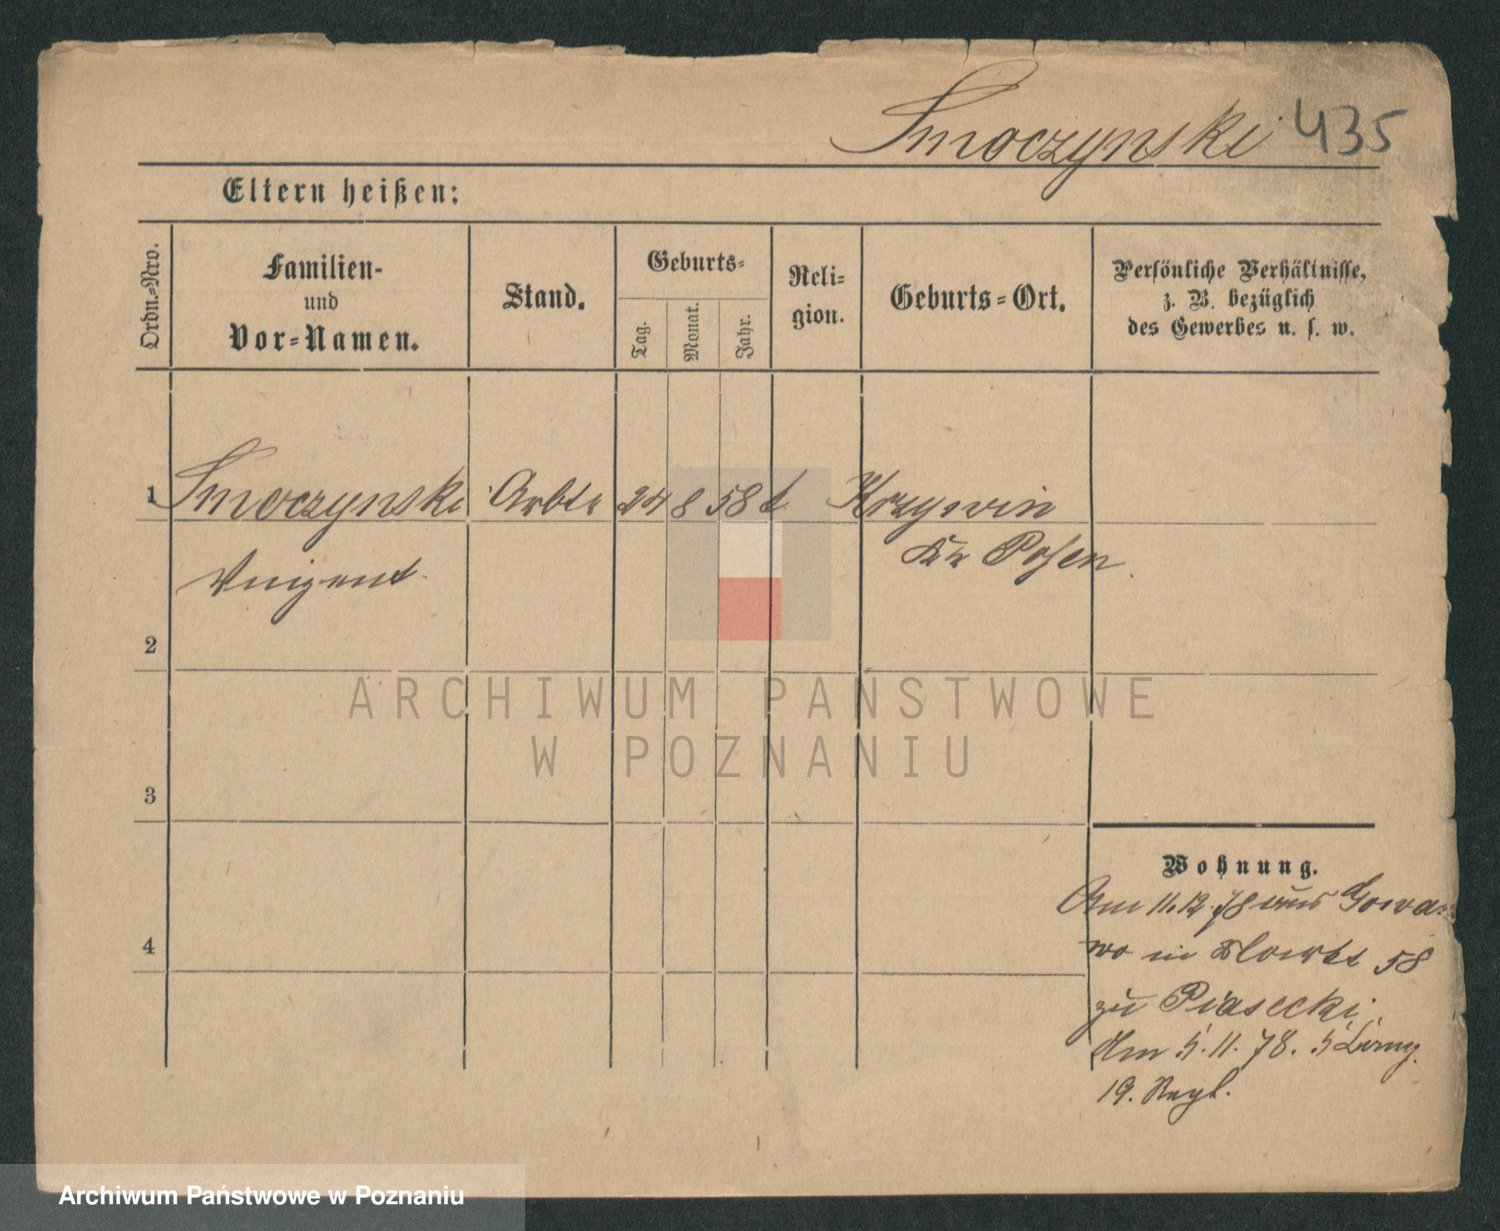 Smoczynski 435
Eltern heißen:
Ordn.-Nro.
Familien-
und
Vor-Namen.
Stand.
Geburts-
Tag.
Monat.
Jahr.
Reli-
gion.
Geburts-Ort.
Persönliche Verhältnisse,
z. B. bezüglich
des Gewerbes u. s. w.
1 Smoczynski Arbtr 24 8 58 k Krzywin
Vinzent Kr Posen
2
3
4
Wohnung.
Am 11.12.78 aus
wo in 58
zu Piasecki.
Am 5.11.78. 5
19. Regt.
ARCHIWUM PAŃSTWOWE
W POZNANIU
Archiwum Państwowe w Poznaniu